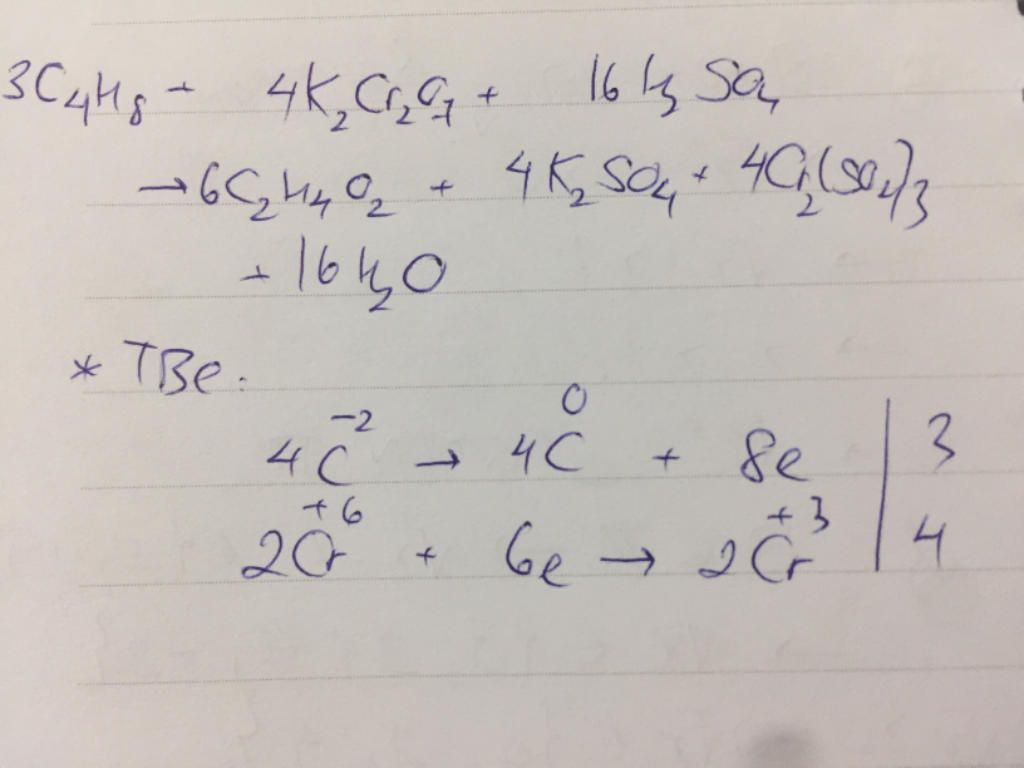 3C₄H₈ + 4K₂Cr₂O₇ + 16H₂SO₄
→ 6C₂H₄O₂ + 4K₂SO₄ + 4Cr₂(SO₄)₃
+ 16H₂O
* TBe:
4C⁻² → 4C⁰ + 8e | 3
2Cr⁺⁶ + 6e → 2Cr⁺³ | 4